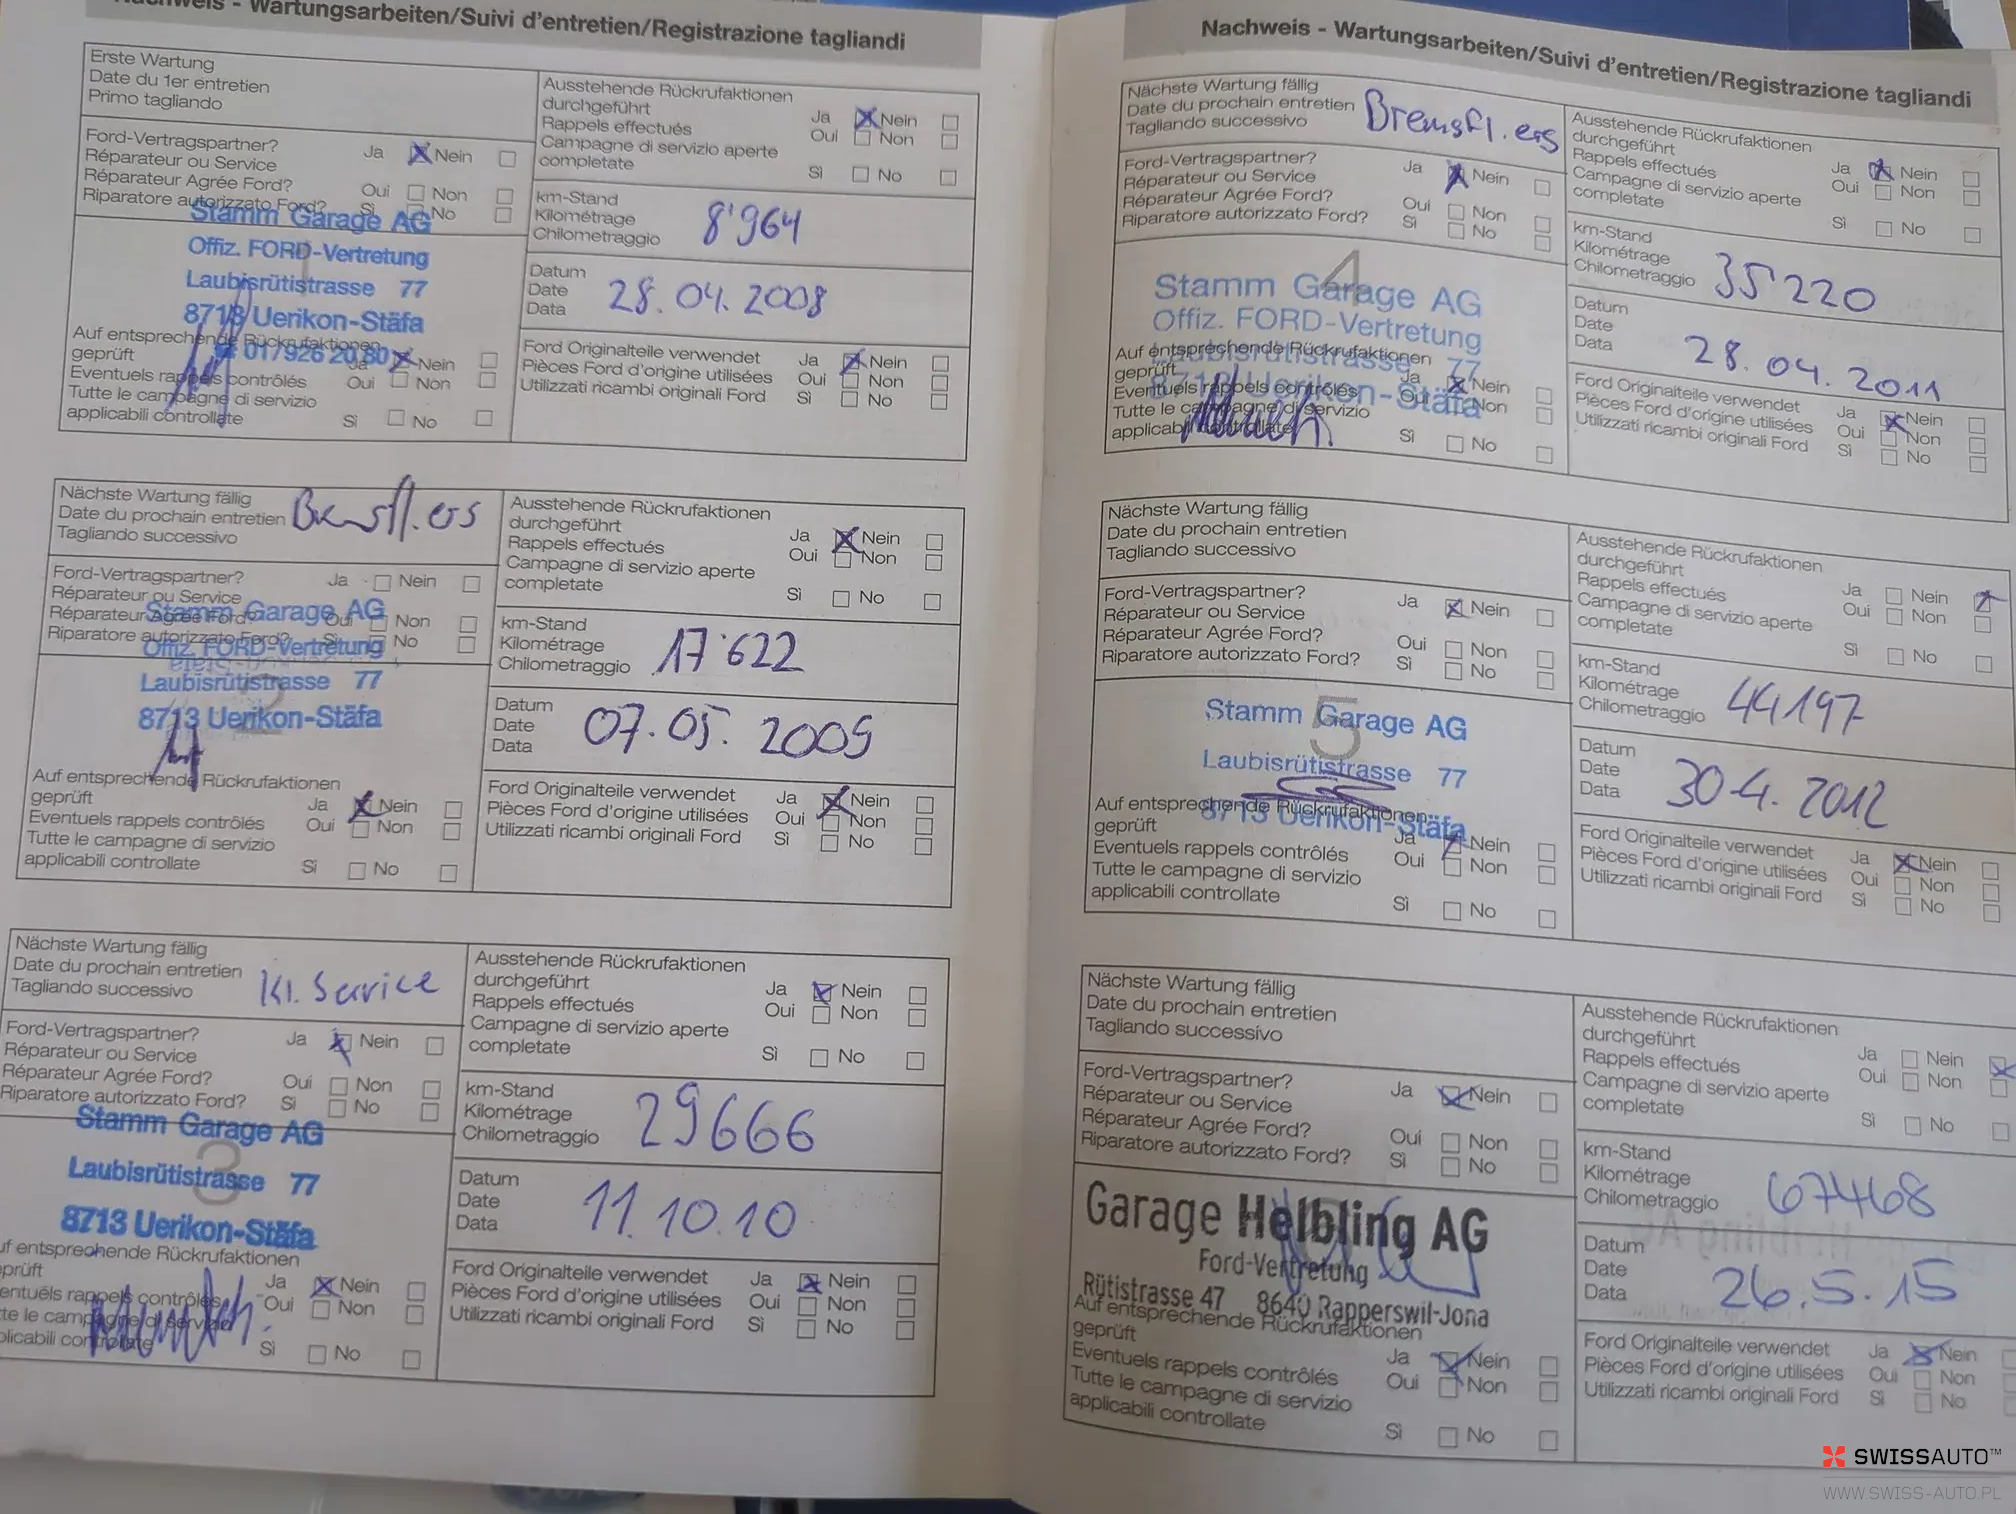 Nachweis - Wartungsarbeiten/Suivi d'entretien/Registrazione tagliandi
Erste Wartung
Date du 1er entretien
Primo tagliando
Ausstehende Rückrufaktionen
durchgeführt
Rappels effectués
Campagne di servizio aperte
completate
Ja Nein
Oui Non
Sì No
Ford-Vertragspartner?
Réparateur ou Service
Réparateur Agrée Ford?
Riparatore autorizzato Ford?
Ja Nein
Oui Non
Sì No
km-Stand
Kilométrage
Chilometraggio
8'964
Stamm Garage AG
Offiz. FORD-Vertretung
Laubisrütistrasse 77
8713 Uerikon-Stäfa
01/926 20 80
Datum
Date
Data
28.04.2008
Auf entsprechende Rückrufaktionen
geprüft
Eventuels rappels contrôlés
Tutte le campagne di servizio
applicabili controllate
Ja Nein
Oui Non
Sì No
Ford Originalteile verwendet
Pièces Ford d'origine utilisées
Utilizzati ricambi originali Ford
Ja Nein
Oui Non
Sì No
Nächste Wartung fällig
Date du prochain entretien
Tagliando successivo
Bremsfl. ers
Ausstehende Rückrufaktionen
durchgeführt
Rappels effectués
Campagne di servizio aperte
completate
Ja Nein
Oui Non
Sì No
Ford-Vertragspartner?
Réparateur ou Service
Réparateur Agrée Ford?
Riparatore autorizzato Ford?
Ja Nein
Oui Non
Sì No
km-Stand
Kilométrage
Chilometraggio
17'622
Stamm Garage AG
Offiz. FORD-Vertretung
Laubisrütistrasse 77
8713 Uerikon-Stäfa
2
Datum
Date
Data
07.05.2009
Auf entsprechende Rückrufaktionen
geprüft
Eventuels rappels contrôlés
Tutte le campagne di servizio
applicabili controllate
Ja Nein
Oui Non
Sì No
Ford Originalteile verwendet
Pièces Ford d'origine utilisées
Utilizzati ricambi originali Ford
Ja Nein
Oui Non
Sì No
Nächste Wartung fällig
Date du prochain entretien
Tagliando successivo
Kl. Service
Ausstehende Rückrufaktionen
durchgeführt
Rappels effectués
Campagne di servizio aperte
completate
Ja Nein
Oui Non
Sì No
Ford-Vertragspartner?
Réparateur ou Service
Réparateur Agrée Ford?
Riparatore autorizzato Ford?
Ja Nein
Oui Non
Sì No
km-Stand
Kilométrage
Chilometraggio
29666
Stamm Garage AG
3
Laubisrütistrasse 77
8713 Uerikon-Stäfa
Datum
Date
Data
11.10.10
uf entsprechende Rückrufaktionen
prüft
entuels rappels contrôlés
te le campagne di servizio
plicabili controllate
Ja Nein
Oui Non
Sì No
Ford Originalteile verwendet
Pièces Ford d'origine utilisées
Utilizzati ricambi originali Ford
Ja Nein
Oui Non
Sì No
Nachweis - Wartungsarbeiten/Suivi d'entretien/Registrazione tagliandi
Nächste Wartung fällig
Date du prochain entretien
Tagliando successivo
Bremsfl. ers
Ausstehende Rückrufaktionen
durchgeführt
Rappels effectués
Campagne di servizio aperte
completate
Ja Nein
Oui Non
Sì No
Ford-Vertragspartner?
Réparateur ou Service
Réparateur Agrée Ford?
Riparatore autorizzato Ford?
Ja Nein
Oui Non
Sì No
km-Stand
Kilométrage
Chilometraggio
35220
4
Stamm Garage AG
Offiz. FORD-Vertretung
Laubisrütistrasse 77
8713 Uerikon-Stäfa
Datum
Date
Data
28.04.2011
Auf entsprechende Rückrufaktionen
geprüft
Eventuels rappels contrôlés
Tutte le campagne di servizio
applicabili controllate
Ja Nein
Oui Non
Sì No
Ford Originalteile verwendet
Pièces Ford d'origine utilisées
Utilizzati ricambi originali Ford
Ja Nein
Oui Non
Sì No
Nächste Wartung fällig
Date du prochain entretien
Tagliando successivo
Ausstehende Rückrufaktionen
durchgeführt
Rappels effectués
Campagne di servizio aperte
completate
Ja Nein
Oui Non
Sì No
Ford-Vertragspartner?
Réparateur ou Service
Réparateur Agrée Ford?
Riparatore autorizzato Ford?
Ja Nein
Oui Non
Sì No
km-Stand
Kilométrage
Chilometraggio
44197
Stamm Garage AG
5
Laubisrütistrasse 77
8713 Uerikon-Stäfa
Datum
Date
Data
30.4.2012
Auf entsprechende Rückrufaktionen
geprüft
Eventuels rappels contrôlés
Tutte le campagne di servizio
applicabili controllate
Ja Nein
Oui Non
Sì No
Ford Originalteile verwendet
Pièces Ford d'origine utilisées
Utilizzati ricambi originali Ford
Ja Nein
Oui Non
Sì No
Nächste Wartung fällig
Date du prochain entretien
Tagliando successivo
Ausstehende Rückrufaktionen
durchgeführt
Rappels effectués
Campagne di servizio aperte
completate
Ja Nein
Oui Non
Sì No
Ford-Vertragspartner?
Réparateur ou Service
Réparateur Agrée Ford?
Riparatore autorizzato Ford?
Ja Nein
Oui Non
Sì No
km-Stand
Kilométrage
Chilometraggio
67468
Garage Helbling AG
Ford-Vertretung
Rütistrasse 47 8640 Rapperswil-Jona
Datum
Date
Data
26.5.15
Auf entsprechende Rückrufaktionen
geprüft
Eventuels rappels contrôlés
Tutte le campagne di servizio
applicabili controllate
Ja Nein
Oui Non
Sì No
Ford Originalteile verwendet
Pièces Ford d'origine utilisées
Utilizzati ricambi originali Ford
Ja Nein
Oui Non
Sì No
SWISSAUTO™
WWW.SWISS-AUTO.PL